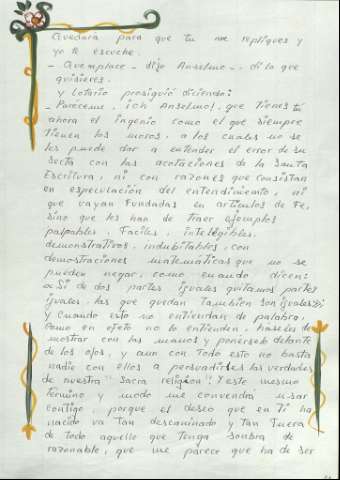 quedará para que tu me repliques y
yo te escuche.
- Que me place - dijo Anselmo -, di lo que
quisieres.
y Lotario prosiguió diciendo:
- Paréceme, ¡oh Anselmo!, que tienes tú
ahora el ingenio como el que siempre
tienen los moros, a los cuales no se
les puede dar a entender el error de su
secta con las acotaciones de la Santa
Escritura, ni con razones que consistan
en especulación del entendimiento, ni
que vayan fundadas en artículos de Fe,
sino que les han de traer ejemplos
palpables, Fáciles, intelegibles,
demonstrativos, indubitables, con
demostraciones matemáticas que no se
pueden negar, como cuando dicen:
«Si de dos partes iguales quitamos partes
iguales, las que quedan también son iguales»;
y cuando esto no entiendan de palabra,
como en efeto no lo entienden, háseles de
mostrar con las manos y ponérselo delante
de los ojos, y aun con todo esto no basta
nadie con ellos a persuadirles las verdades
de nuestra "sacra religión". Y este mesmo
término y modo me convendrá usar
contigo, porque el deseo que en ti ha
nacido va tan descaminado y tan fuera
de todo aquello que tenga sombra de
razonable, que me parece que ha de ser